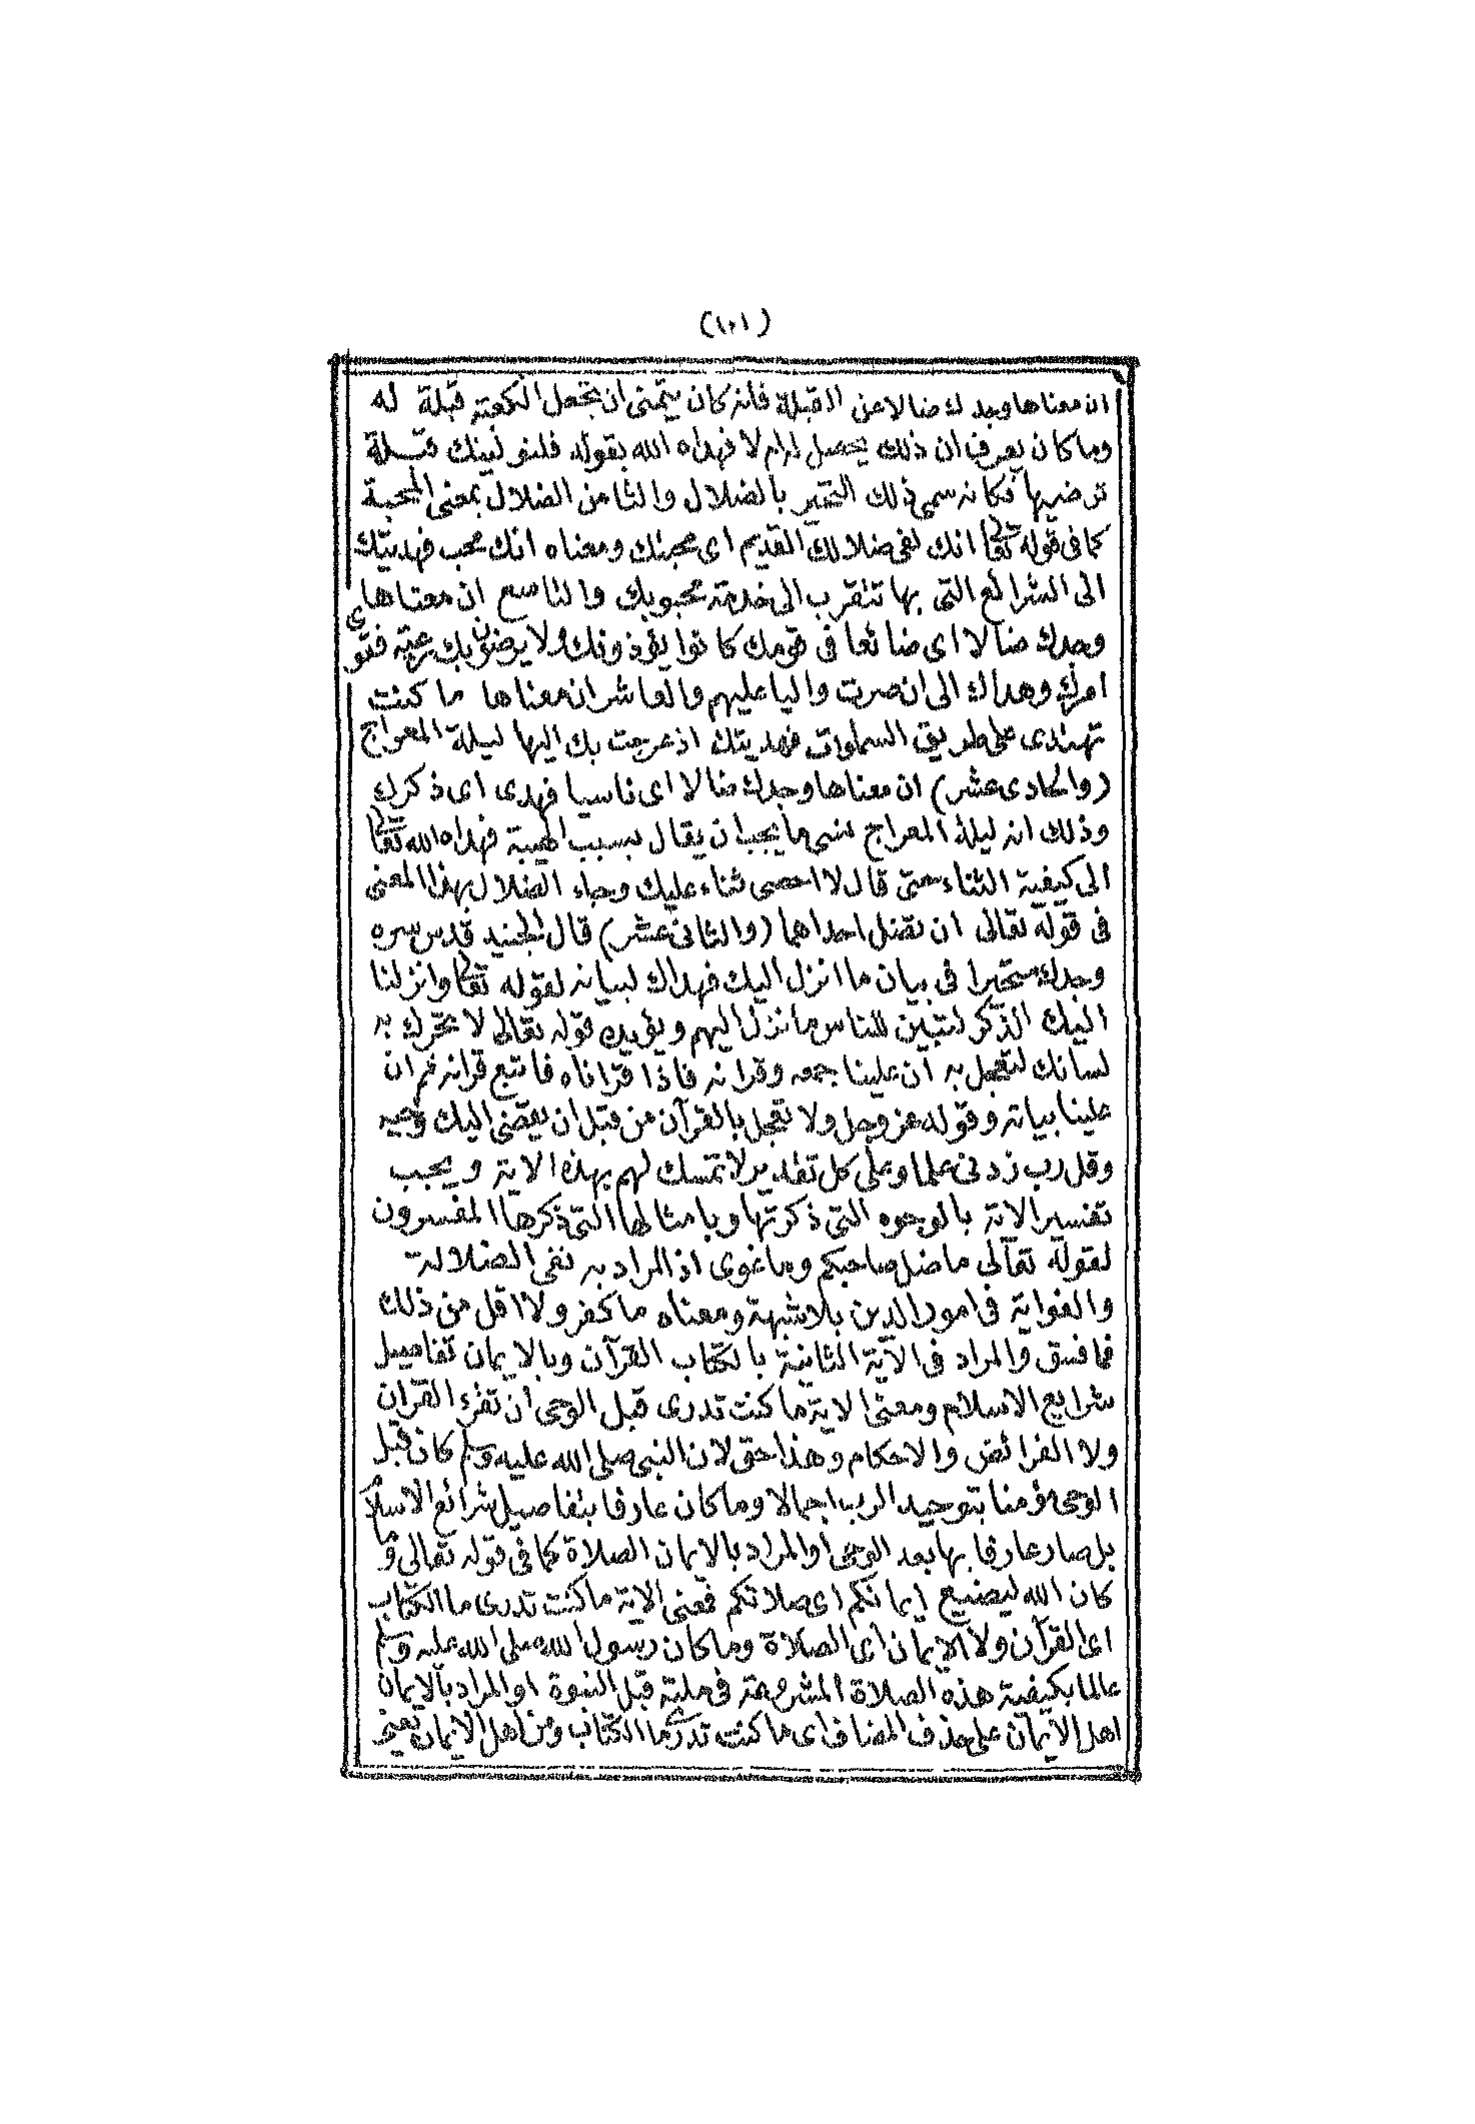 (١٠١)
ان معناها وجدك ضالا عن القبلة فانه كان يتمنى ان تجعل الكعبة قبلة له
وما كان يعرف ان ذلك يحصل له ام لا فهداه الله بقوله فلنولينك قبلة
ترضيها فكانه سمى ذلك التحير بالضلال والثامن الضلال بمعنى المحبة
كما فى قوله تعالى انك لفى ضلالك القديم اى محبتك ومعناه انك محب فهديتك
الى الشرائع التى بها تتقرب الى خدمة محبوبك والتاسع ان معناها
وجدك ضالا اى ضائعا فى قومك كانوا يؤذونك ولا يرضون بك رعية فقوى
امرك وهداك الى ان صرت واليا عليهم والعاشر ان معناها ما كنت
تهتدى على طريق السموات فهديتك اذ عرجت بك اليها ليلة المعراج
(والحادى عشر) ان معناها وجدك ضالا اى ناسيا فهدى اى ذكرك
وذلك انه ليلة المعراج نسى ما يجب ان يقال بسبب الهيبة فهداه الله تعالى
الى كيفية الثناء حتى قال لا احصى ثناء عليك وجاء الضلال بهذا المعنى
فى قوله تعالى ان تضل احداهما (والثانى عشر) قال الجنيد قدس سره
وجدك متحيرا فى بيان ما انزل اليك فهداك لبيانه لقوله تعالى وانزلنا
اليك الذكر لتبين للناس ما نزل اليهم ويؤيده قوله تعالى لا تحرك به
لسانك لتعجل به ان علينا جمعه وقرانه فاذا قراناه فاتبع قرانه ثم ان
علينا بيانه وقوله عز وجل ولا تعجل بالقرآن من قبل ان يقضى اليك وحيه
وقل رب زدنى علما وعلى كل تقدير لا تمسك لهم بهذه الاية ويجب
تفسير الاية بالوجوه التى ذكرتها وبامثالها التى ذكرها المفسرون
لقوله تعالى ما ضل صاحبكم وما غوى اذ المراد به نفى الضلالة
والغواية فى امور الدين بلا شبهة ومعناه ما كفر ولا اقل من ذلك
فما فسق والمراد فى الآية الثانية بالكتاب القرآن وبالايمان تفاصيل
شرايع الاسلام ومعنى الاية ما كنت تدرى قبل الوحى ان تقرء القران
ولا الفرائض والاحكام وهذا حق لان النبى صلى الله عليه وسلم كان قبل
الوحى مؤمنا بتوحيد الرب اجمالا وما كان عارفا بتفاصيل شرائع الاسلام
بل صار عارفا بها بعد الوحى او المراد بالايمان الصلاة كما فى قوله تعالى وما
كان الله ليضيع ايمانكم اى صلاتكم فمعنى الاية ما كنت تدرى ما الكتاب
اى القرآن ولا الايمان اى الصلاة وما كان رسول الله صلى الله عليه وسلم
عالما بكيفية هذه الصلاة المشروعة فى ملته قبل النبوة او المراد بالايمان
اهل الايمان على حذف المضاف اى ما كنت تدرى ما الكتاب ومن اهل الايمان يعنى